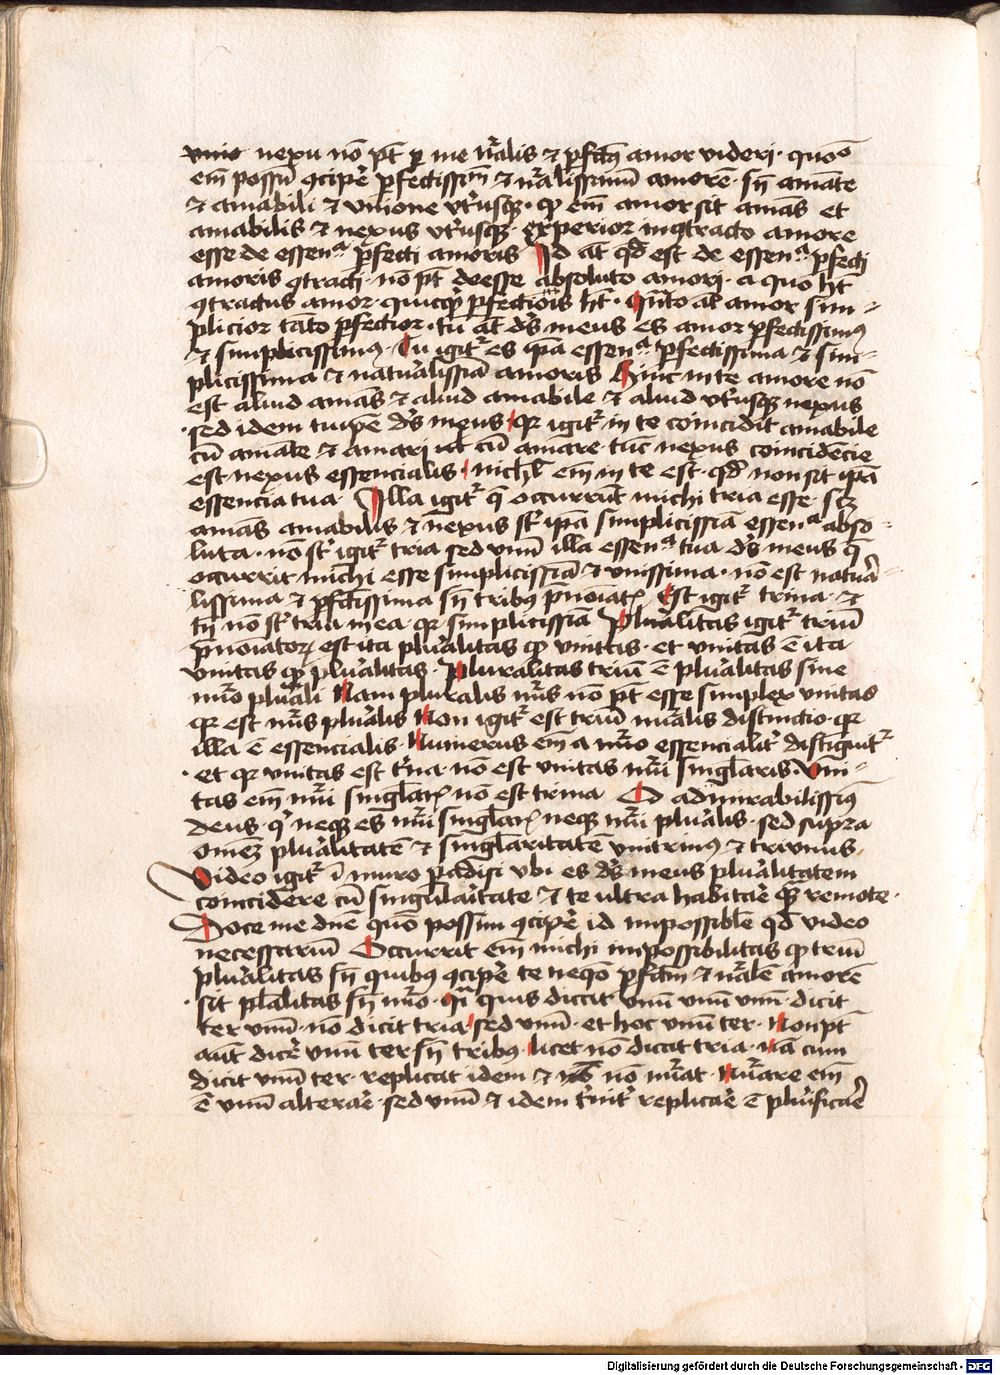 vnio nexu nō pt̄ ꝑ me nr̄alis ⁊ ꝑfcūs amor videri · quōo
em̄ possū ꝯciꝑe ꝑfectissim̄ ⁊ nr̄alissimū amorē · sn̄ amāte
⁊ amabili ⁊ vnione vtriusqꝫ · qꝫ em̄ amor sit amās et
amabilis ⁊ nexus vtriusqꝫ · exꝑior in ꝯtracto amore
esse de essenᵃ ꝑfecti amoris Id at̄ qd̄ est de essenᵃ ꝑfecti
amoris ꝯtracti · nō pt̄ deesse absoluto amori · a quo ht̄
ꝯtractus amor · quicqͥd ꝑfectiōis ht̄ · Qn̄to at̄ amor sim=
plicior tāto ꝑfectior · tu at̄ ds̄ meus es amor ꝑfectissimꝰ
⁊ simplicissimꝰ · Tu igitr̄ es ip̄a essenᵃ ꝑfectissima ⁊ sim=
plicissima ⁊ naturalissīa amoris Hinc in te amore nō
est aliud amās ⁊ aliud amabile ⁊ aliud vtriusqꝫ nexus
· sed idem tuip̄e ds̄ meus · qr igitr̄ in te coincidit amabile
cū amāte ⁊ amari cū amare tūc nexus coincidēcie
est nexus essencialis · nichil em̄ in te est · qd̄ non sit ip̄a
essencia tua · Illa igitr̄ q̄ occurrūt michi tria esse · scꝫ
amās amabilis ⁊ nexus st̄ ip̄a simplicissīa essenᵃ abso-
luta · nō st̄ igitr̄ tria sed vnū illa essenᵃ tua ds̄ meus q̄
occurrit michi esse simplicissīa ⁊ vnissima · nō est natura=
lissima ⁊ ꝑfcissima sn̄ tribus p̄noiatis Est igitr̄ trina · ⁊
tn̄ nō st̄ tria in ea · qr simplicissīa Pluralitas igitr̄ triū
p̄noiatorꝫ est ita pluralitas qꝫ vnitas · et vnitas ē ita
vnitas qꝫ pluralitas · Pluralitas triū ē pluralitas sine
nūro plurali Nam pluralis nūrs nō pt̄ esse simplex vnitas
qr est nūrs pluralis Non igitr̄ est triū nūralis distinctio · qr
illa ē essencialis · Numerus em̄ a nūro essencialitr̄ distīguitr̄
· et qr vnitas est trina · nō est vnitas nūri singlaris · Vni=
tas em̄ nūri singlaris nō est trina O admirabilissimꝰ
deus · qͥ neqꝫ es nūri singlaris neqꝫ nūri pluralis · sed supra
omnē pluralitatē ⁊ singlaritatē vnitrinꝰ ⁊ triunus ·
Video igitr̄ ī muro ꝑadisi vbi es ds̄ meus pluralitatem
coincidere cū singularitate ⁊ te ultra habitare qꝫ remote ·
Doce me dn̄e quō possim ꝯciꝑe id impossible qd̄ video
necessariū Occurrit em̄ michi impossibilitas qꝫ triū
pluralitas sn̄ quibus ꝯciꝑe te neqō ꝑfcm̄ ⁊ nr̄alē amorē
· sit plalitas sn̄ nūro · qn̄ quis dicat vnū vnū vnū · dicit
ter vnū · nō dicit tria · sed vnū · et hoc vnū ter · Non pt̄
aut̄ dicere vnū ter sn̄ tribus · licet nō dicat tria · Nā cum
dicit vnū ter · replicat idem ⁊ nō nūrat · Nūrare em̄
ē vnū alterare · sed vnū ⁊ idem trinitr̄ replicare ē plurificare